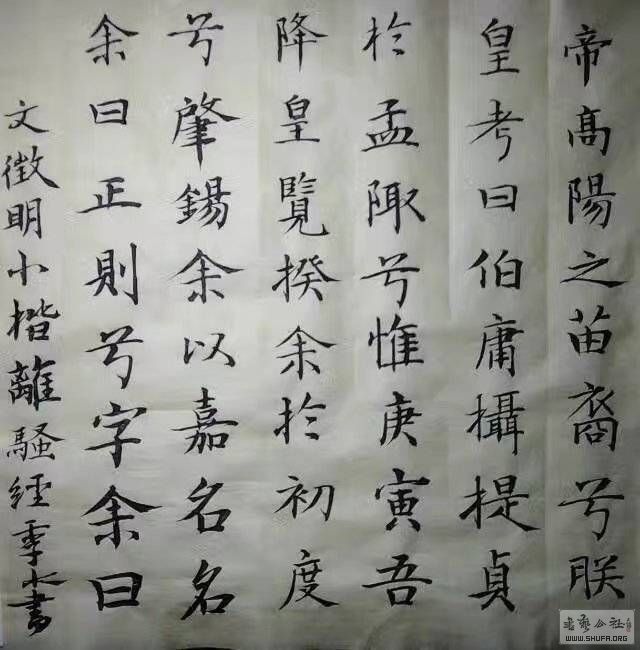 帝髙陽之苗裔兮朕
皇考曰伯庸攝提貞
扵孟陬兮惟庚寅吾
降皇覽揆余扵初度
兮肇錫余以嘉名名
余曰正則兮字余曰
文徵明小楷離騷經季水書
WWW.SHUFA.ORG